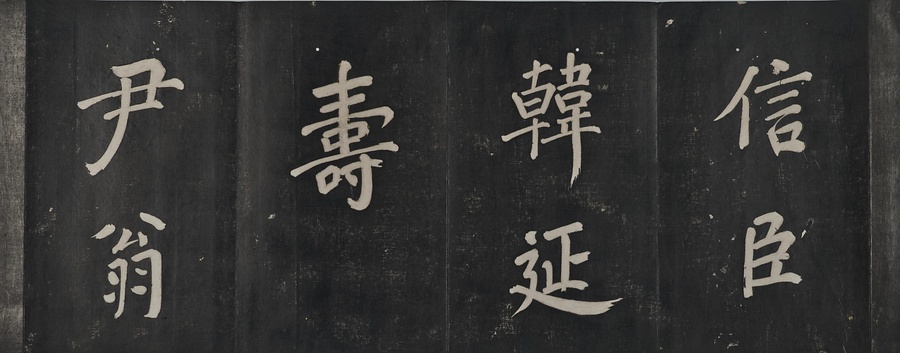 信臣
韓延
壽
尹翁